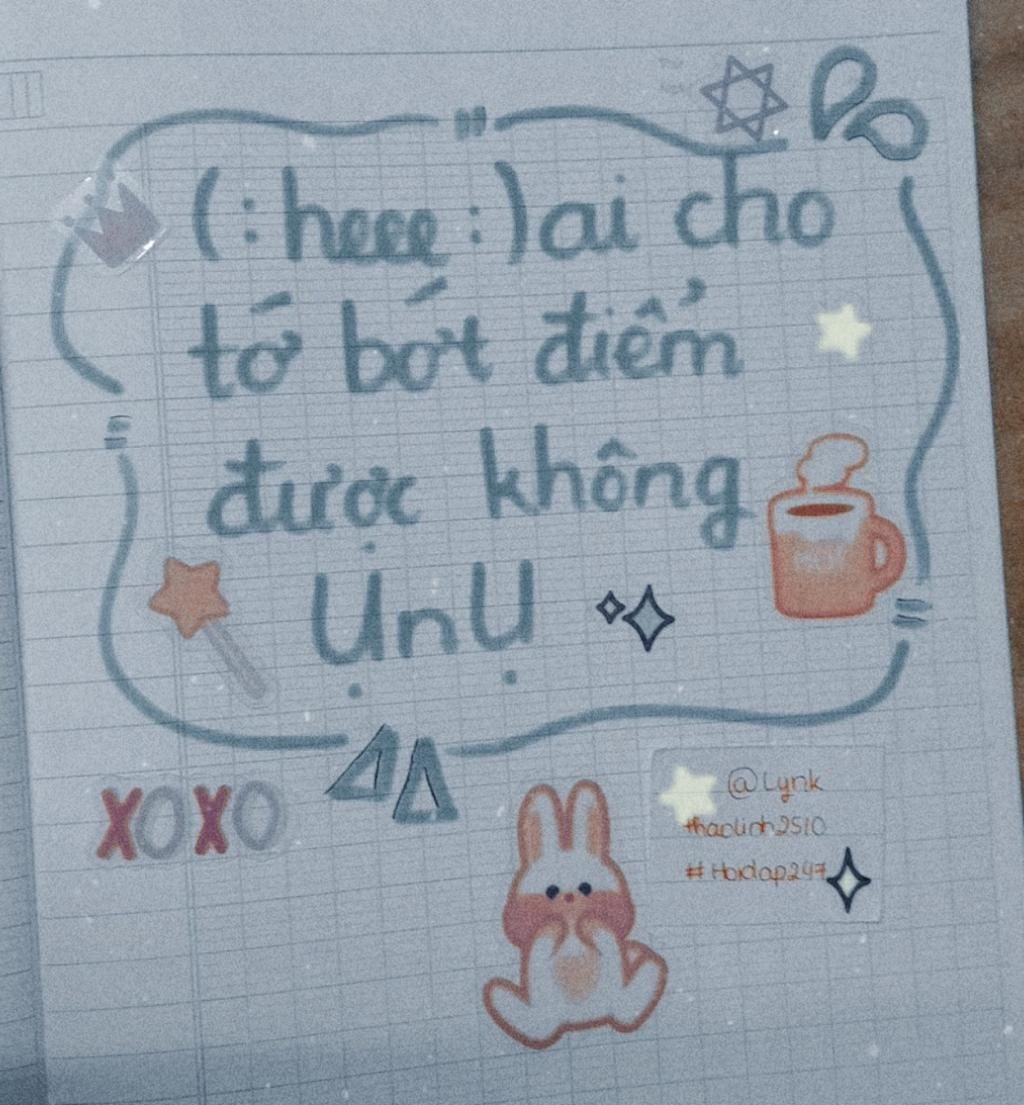 (:heee:)ai cho
tớ bớt điểm
được không
ỤnỤ
XOXO
@Lynk
thaolinh2510
#Hoidap247